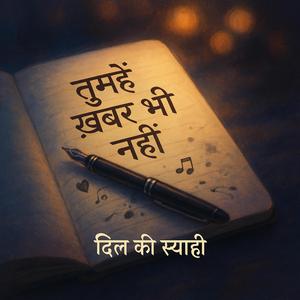 तुमहें
ख़बर भी
नहीं
दिल की स्याही